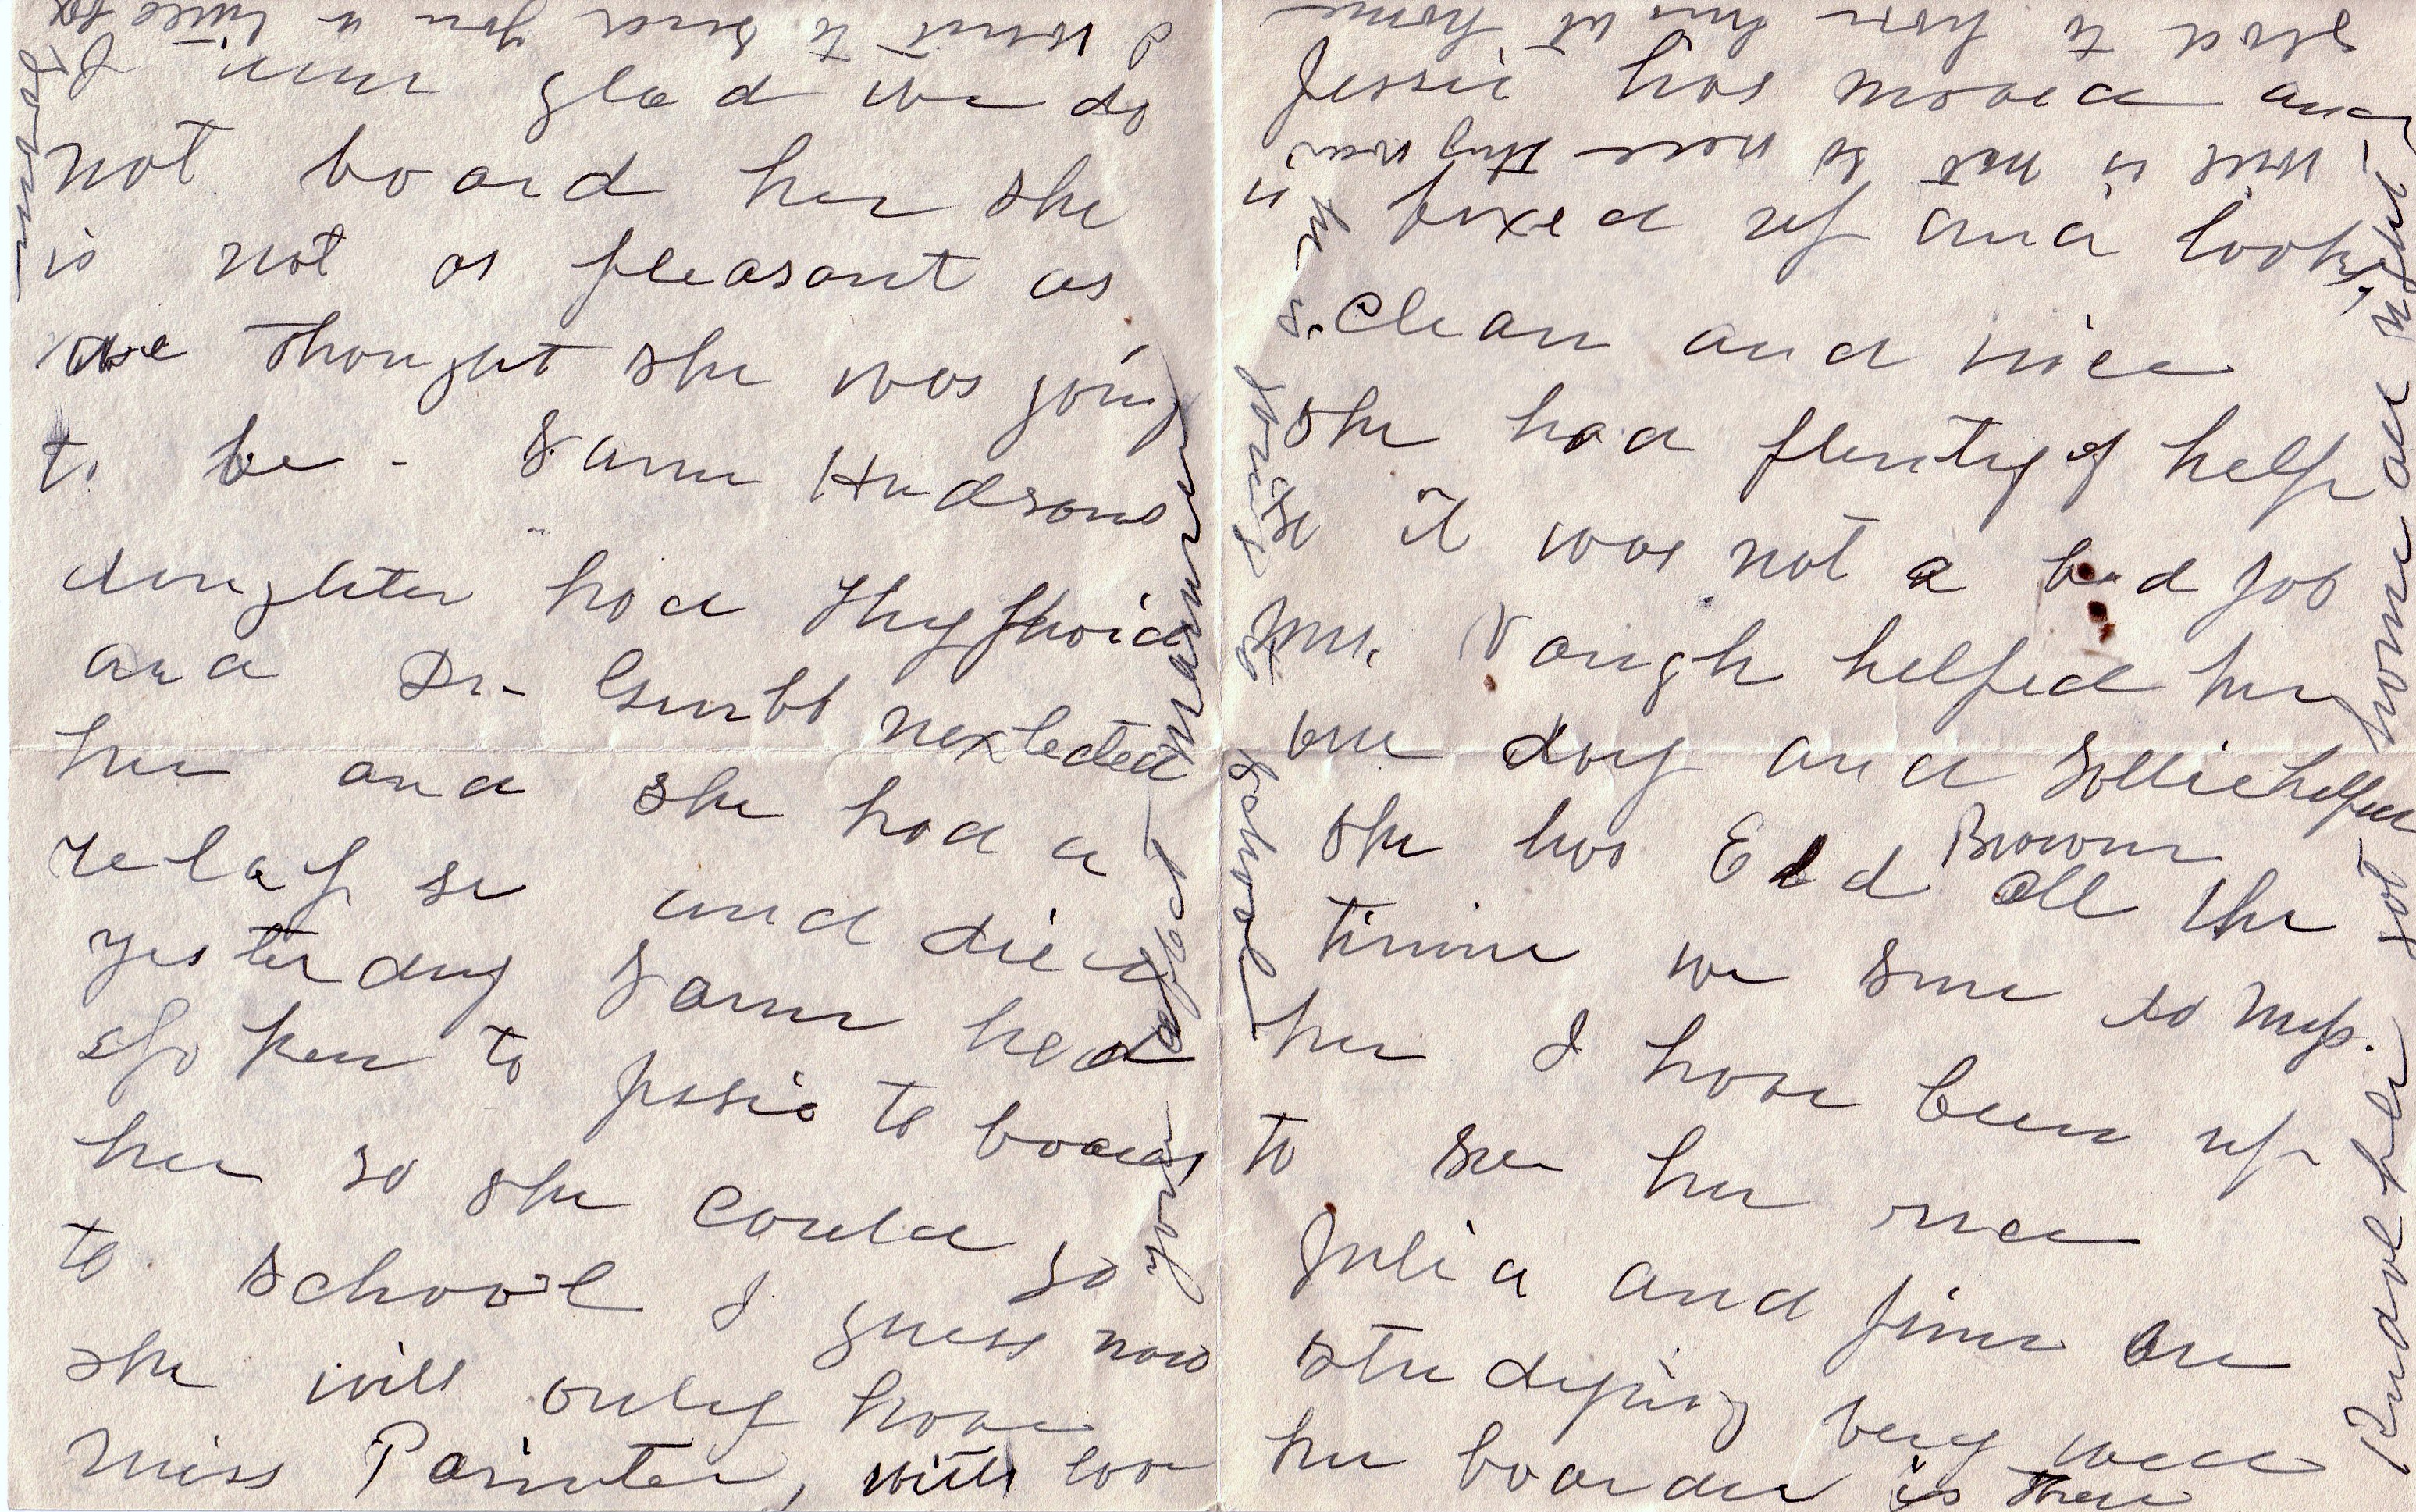 I am glad we do
not board her she
is not as pleasant as
we thought she was going
to be - Sam Hudsons
daughter had Thyphoid
and Dr- Gumbs nexlected
her and she had a
relapse and died
yesterday Sam had
spoken to Jessie to board
her so she could go
to school I guess now
she will only have
Miss Painter, with love
your affect Mamma
I want to send you a little
Jessie has moved and
is fixed up and looks
clean and nice
she had plenty of help
so it was not a bad job
Mrs. Vaugh helped her
one day and Sollie helped
she has Edd Brown all the
time we sure do miss
her I have been up
to see her once
Julia and Jim are
studying very well
her boarder is there
glad to have him at home
well is not so near they
Rudolph got home all right